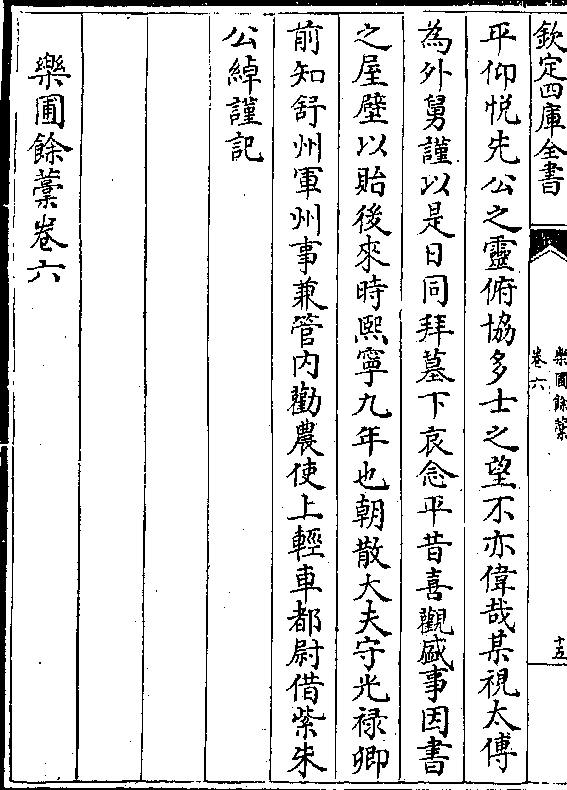 欽定四庫全書
樂圃餘藁
卷六
十五
平仰悦先公之靈俯協多士之望不亦偉哉某視太傅
為外舅謹以是日同拜墓下哀念平昔喜觀盛事因書
之屋壁以貽後來時熙寧九年也朝散大夫守光禄卿
前知舒州軍州事兼管内勸農使上輕車都尉借紫朱
公綽謹記
樂圃餘藁卷六